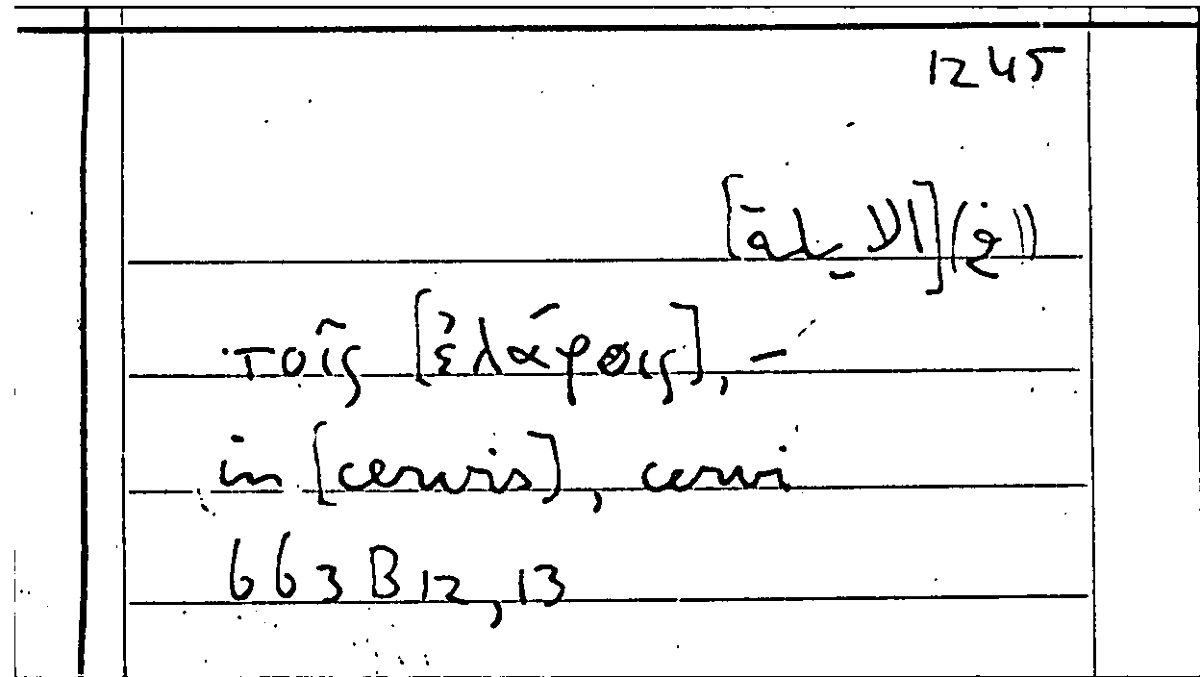 1245
τοῖς [ἐλάφοις], –
in [cervis], cervi
663 B 12, 13